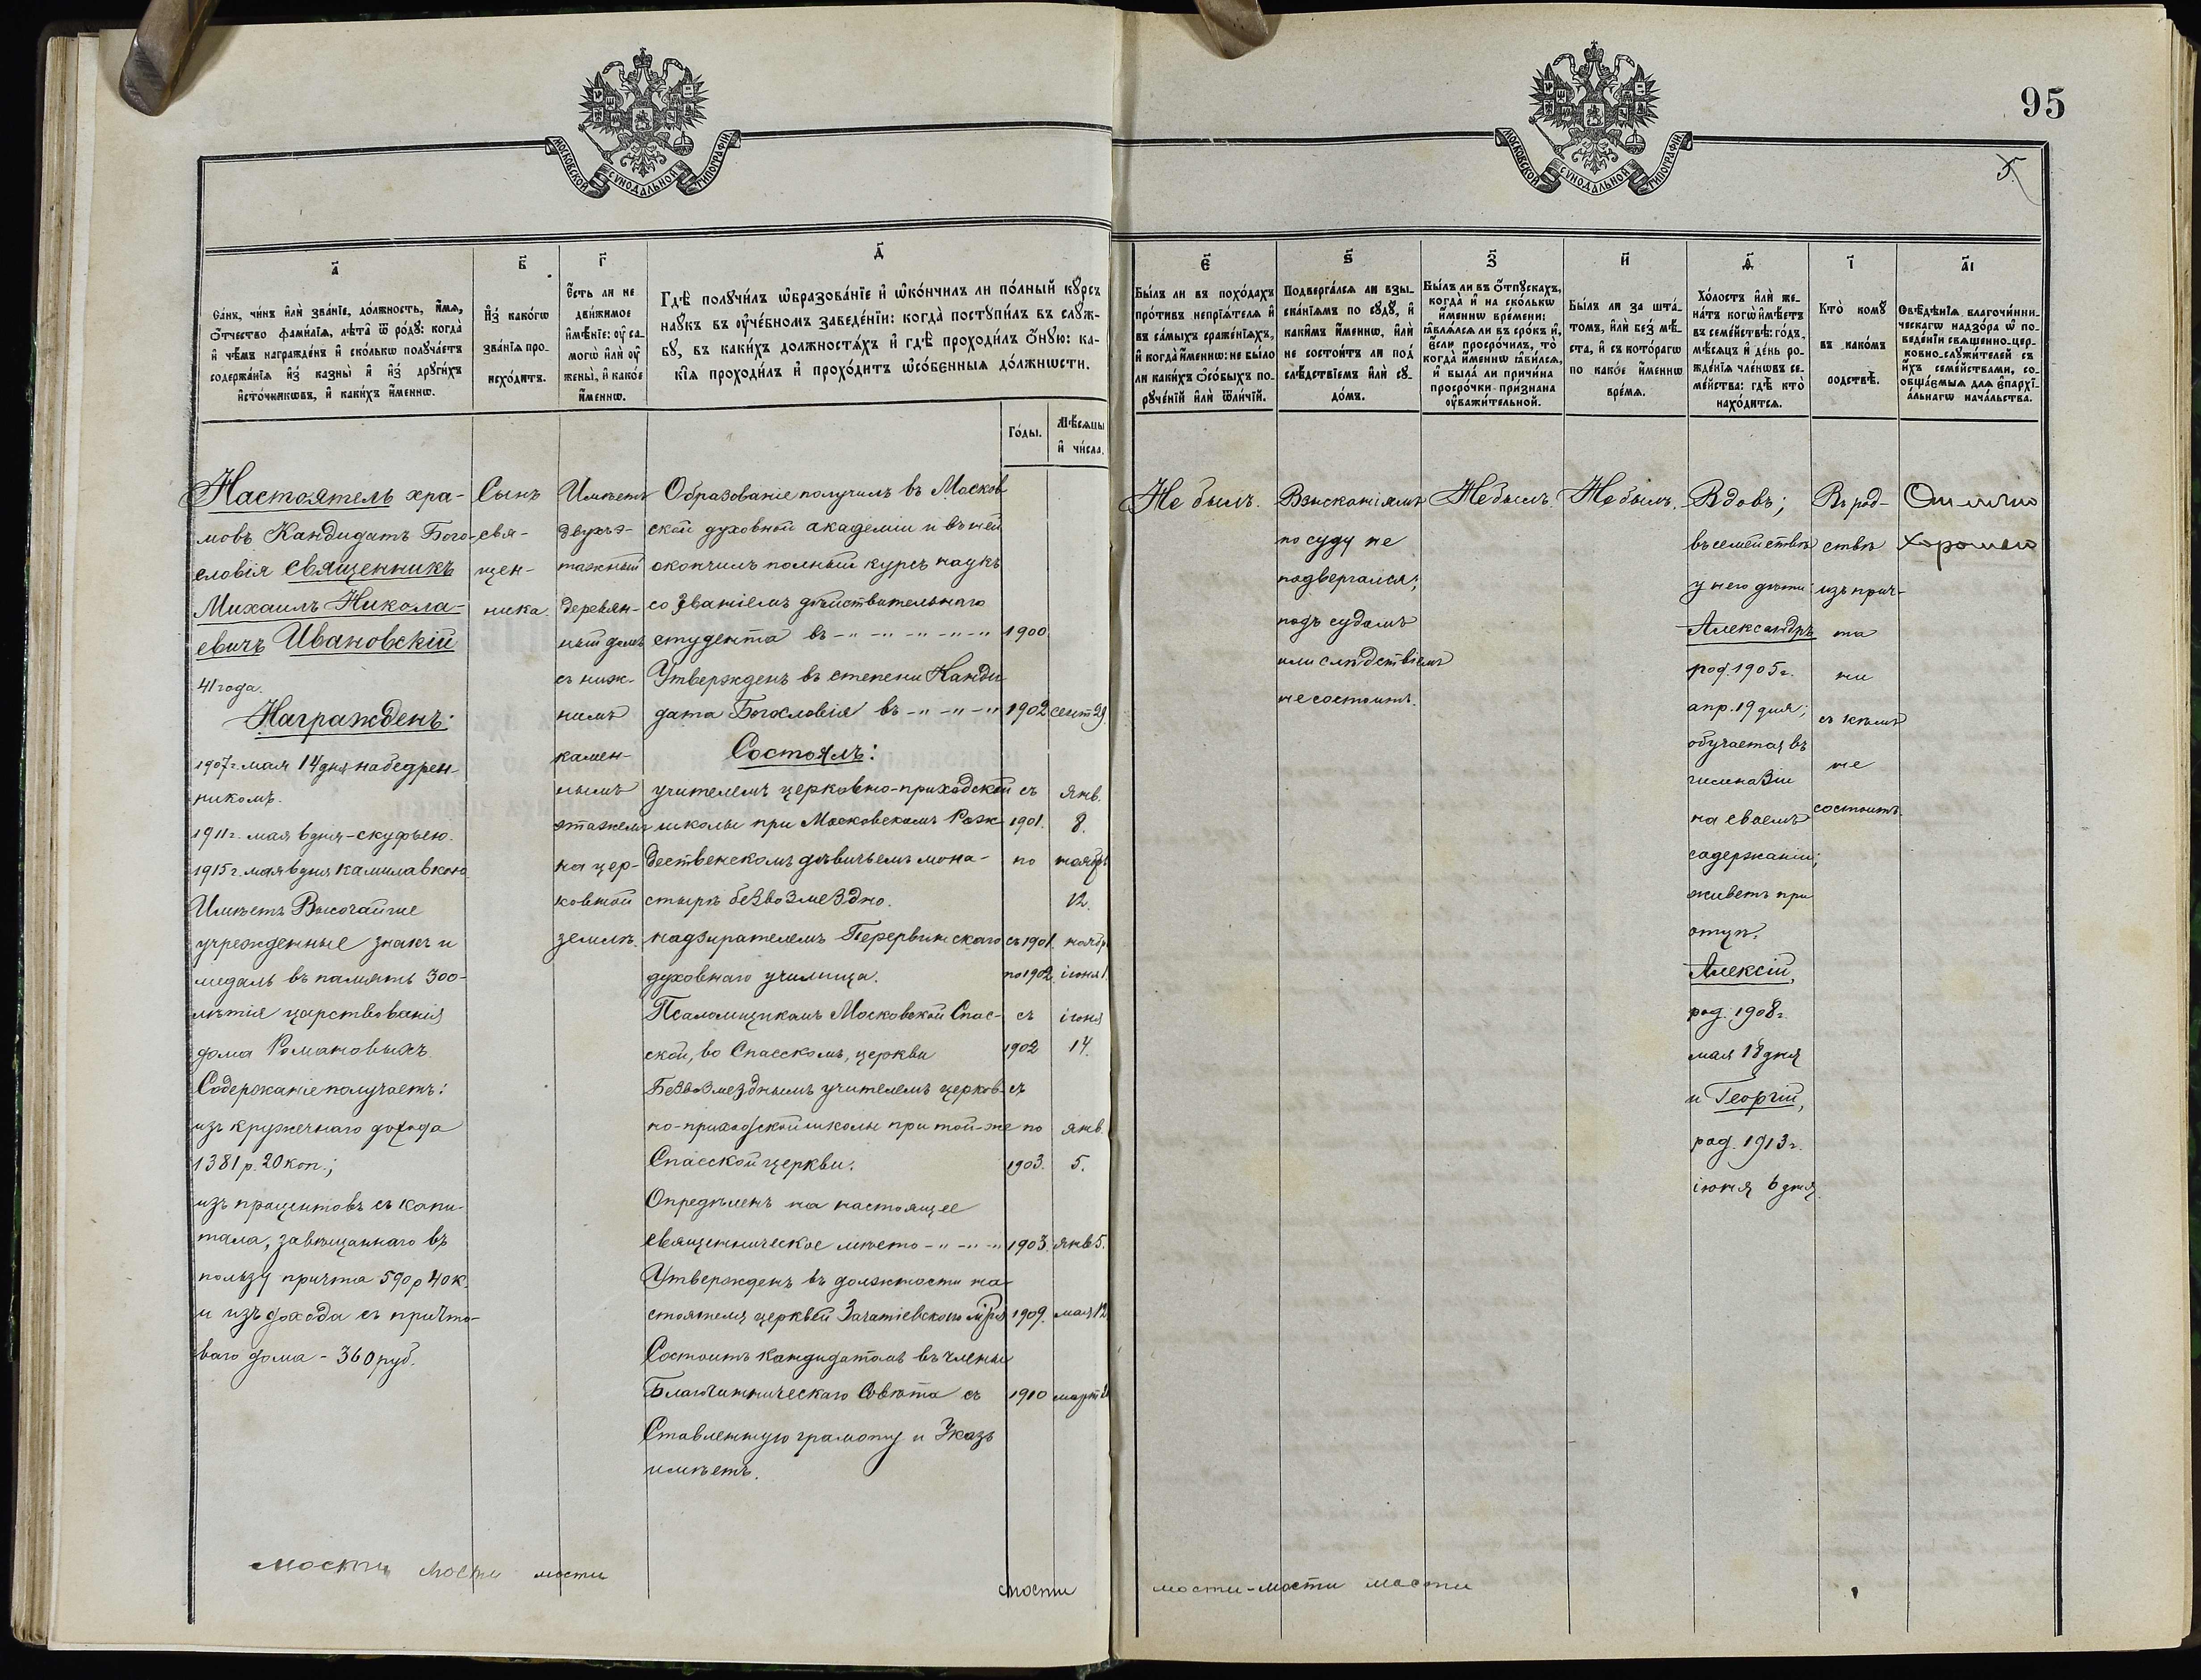 95
5.
МОСКОВСКОЙ СѴНОДАЛЬНОЙ ТИПОГРАФІИ.
МОСКОВСКОЙ СѴНОДАЛЬНОЙ ТИПОГРАФІИ.
а҃
Са́нъ, чи́нъ и҆лѝ зва́нїе, до́лжность, и҆́мѧ,
ѻ҆́тчество фами́лїѧ, лѣ́та ѿ ро́дꙋ: когда̀
и҆ чѣ́мъ награжде́нъ и҆ ско́лькѡ полꙋча́етъ
содержа́нїѧ и҆з̾ казны̀ и҆ и҆з̾ дрꙋги́хъ
и҆сто́чникѡвъ, и҆ каки́хъ и҆́меннѡ.
в҃
И҆з̾ како́гѡ
зва́нїѧ про-
исхо́дитъ.
г҃
Е҆́сть ли не
дви́жимое
и҆мѣ́нїе: ᲂу҆ са-
могѡ̀ и҆лѝ ᲂу҆
жены̀, и҆ како́е
и҆́меннѡ.
д҃
Гдѣ̀ полꙋчи́лъ ѡ҆бразова́нїе и҆ ѡ҆ко́нчилъ ли по́лный кꙋ́рсъ
наꙋ́къ въ ᲂу҆че́бномъ заведе́нїи: когда̀ постꙋпи́лъ въ слꙋ́ж-
бꙋ, въ каки́хъ должностѧ́хъ и҆ гдѣ̀ проходи́лъ ѻ҆́нꙋю: ка-
кі́ѧ проходи́лъ и҆ прохо́дитъ ѡ҆со́бенныѧ до́лжнѡсти.
Го́ды.
Мѣ́сѧцы
и҆ чи́сла.
є҃
Бы́лъ ли въ похо́дахъ
про́тивъ непрїѧ́телѧ и҆
въ са́мыхъ сраже́нїѧхъ,
и҆ когда̀ и҆́меннѡ: не бы́ло
ли каки́хъ ѻ҆со́быхъ по-
рꙋче́нїй и҆лѝ ѿли́чїй.
ѕ҃
Подверга́лсѧ ли взы-
ска́нїѧмъ по сꙋдꙋ̀, и҆
каки́мъ и҆́меннѡ, и҆лѝ
не состои́тъ ли под̾
слѣ́дствїемъ и҆лѝ сꙋ-
до́мъ.
з҃
Бы́лъ ли въ ѻ҆́тпꙋскахъ,
когда̀ и҆ на ско́лькѡ
и҆́меннѡ вре́мени:
ꙗ҆влѧ́лсѧ ли въ сро́къ и҆,
є҆́сли просро́чилъ, то̀
когда̀ и҆́меннѡ ꙗ҆ви́лсѧ,
и҆ была̀ ли причи́на
просро́чки при́знана
ᲂу҆важи́тельной.
и҃
Бы́лъ ли за шта́-
томъ, и҆лѝ без̾ мѣ́-
ста, и҆ съ кото́рагѡ
по како́е и҆́меннѡ
вре́мѧ.
ѳ҃
Хо́лостъ и҆лѝ же-
на́тъ когѡ̀ и҆мѣ́етъ
въ семе́йствѣ: го́дъ,
мѣ́сѧцъ и҆ де́нь ро-
жде́нїѧ чле́нѡвъ се-
ме́йства: гдѣ̀ кто̀
нахо́дитсѧ.
і҃
Кто̀ комꙋ̀
въ како́мъ
родствѣ̀.
а҃і
Свѣ́дѣнїѧ благочи́нни-
ческагѡ надзо́ра ѡ҆ по-
веде́нїи свѧще́нно-цер-
ковно-слꙋжи́телей съ
и҆́хъ семе́йствами, со-
ѻбща́ємыѧ для є҆пархї-
а́льнагѡ нача́льства.
Настоятель хра-
мовъ Кандидатъ Бого-
словія священникъ
Михаилъ Никола-
евичъ Ивановскій
41 года.
Награжденъ:
1907 г. мая 14 дня набедрен-
никомъ.
1911 г. мая 6 дня - скуфьею.
1915 г. мая 6 дня камилавкою.
Имѣетъ Высочайше
учрежденные знакъ и
медаль въ память 300-
лѣтія царствованія
дома Романовыхъ.
Содержаніе получаетъ:
изъ кружечнаго дохода
1381 р. 20 коп.;
изъ процентовъ съ капи-
тала, завѣщаннаго въ
пользу причта 590 р 40 к.
и изъ дохода съ причто-
ваго дома - 360 руб.
Сынъ
свя-
щен-
ника
Имѣетъ
двухъэ-
тажный
деревян-
ный домъ
съ ниж-
нимъ
камен-
нымъ
этажемъ
на цер-
ковной
землѣ.
Образованіе получилъ въ Москов
ской духовной академіи и въ ней
окончилъ полный курсъ наукъ
со званіемъ дѣйствительнаго
студента въ -"-"-"-"-" 1900.
Утвержденъ въ степени Канди
дата Богословія въ -"-"-" 1902 сент 29.
Состоялъ:
учителемъ церковно-приходской съ янв.
школы при Московскомъ Рож- 1901. 8.
дественскомъ дѣвичьемъ мона- по ноябр.
стырѣ безвозмездно. 12.
надзирателемъ Перервинскаго съ 1901. ноябр.
духовнаго училища. по 1902. іюня 1.
Псаломщикомъ Московской Спас- съ іюня
ской, во Спасскомъ, церкви 1902 14.
Безвозмезднымъ учителемъ церков- съ
но-приходской школы при той-же по янв.
Спасской церкви. 1903. 5.
Опредѣленъ на настоящее
священническое мѣсто -"-"-" 1903. янв 5.
Утвержденъ въ должности на
стоятеля церквей Зачатіевскаго мря 1909. мая 12
Состоитъ кандидатомъ въ члены
Благочинническаго Совѣта съ 1910 март
Ставленную грамоту и Указъ
имѣетъ.
Не былъ.
Взысканіямъ
по суду не
подвергался;
подъ судомъ
или слѣдствіемъ
не состоитъ.
Не былъ.
Не былъ.
Вдовъ;
въ семействѣ
у него дѣти:
Александръ
род. 1905 г.
апр. 19 дня;
обучается въ
гимназіи
на своемъ
содержаніи;
живетъ при
отцѣ.
Алексій,
род. 1908 г.
мая 18 дня
и Георгій,
род. 1913 г.
іюня 6 дня.
Въ род-
ствѣ
изъ прич-
та
ни
съ кѣмъ
не
состоитъ.
Отлично
хорошаго
мости мости мости
мости
мости-мости мости